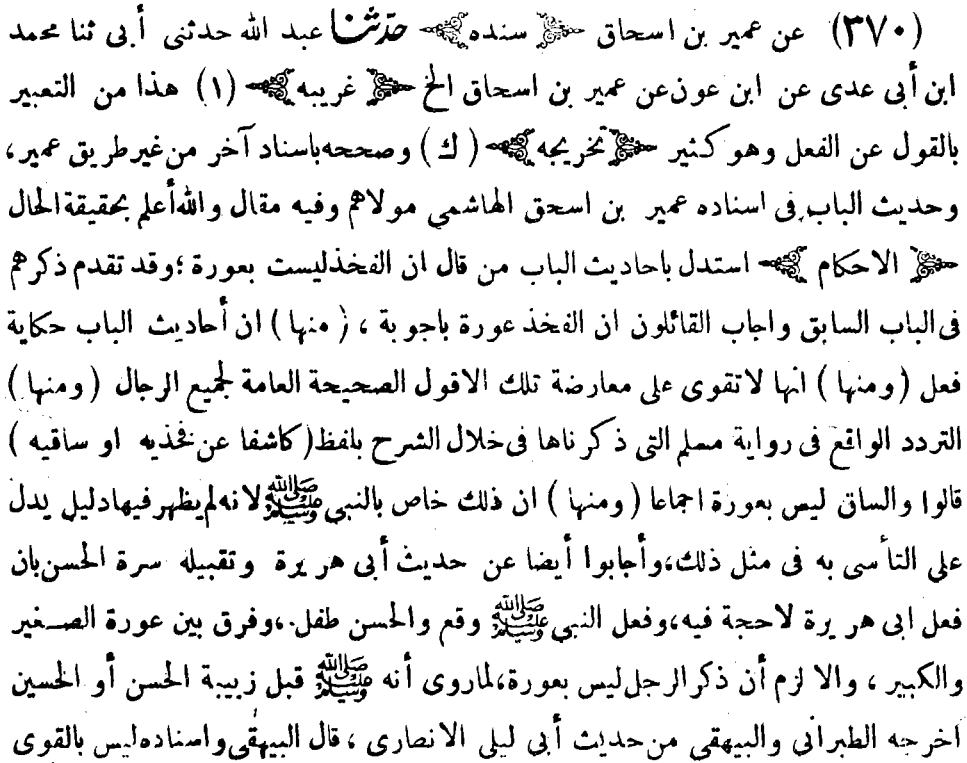 (٣٧٠) عن عمير بن اسحاق ﴿ سنده ﴾ حدّثنا عبد الله حدثنى أبى ثنا محمد
ابن أبى عدى عن ابن عون عن عمير بن اسحاق الخ ﴿ غريبه ﴾ (١) هذا من التعبير
بالقول عن الفعل وهو كثير ﴿ تخريجه ﴾ (ك) وصححه باسناد آخر من غير طريق عمير،
وحديث الباب فى اسناده عمير بن اسحق الهاشمي مولاهم وفيه مقال والله أعلم بحقيقة الحال
﴿ الاحكام ﴾ استدل باحاديث الباب من قال ان الفخذ ليست بعورة ؛ وقد تقدم ذكرهم
فى الباب السابق واجاب القائلون ان الفخذ عورة باجوبة ، (منها) ان أحاديث الباب حكاية
فعل (ومنها) انها لا تقوى على معارضة تلك الاقول الصحيحة العامة لجميع الرجال (ومنها)
التردد الواقع فى رواية مسلم التى ذكرناها فى خلال الشرح بلفظ (كاشفا عن فخذيه او ساقيه)
قالوا والساق ليس بعورة اجماعا (ومنها) ان ذلك خاص بالنبي ﷺ لانه لم يظهر فيها دليل يدل
على التأسى به فى مثل ذلك، وأجابوا أيضا عن حديث أبى هريرة وتقبيله سرة الحسن بان
فعل ابى هريرة لاحجة فيه، وفعل النبي ﷺ وقع والحسن طفل، وفرق بين عورة الصغير
والكبير ، والا لزم أن ذكر الرجل ليس بعورة، لماروى أنه ﷺ قبل زبيبة الحسن أو الحسين
اخرجه الطبرانى والبيهقى من حديث أبى ليلى الانصارى ، قال البيهقى واسناده ليس بالقوى